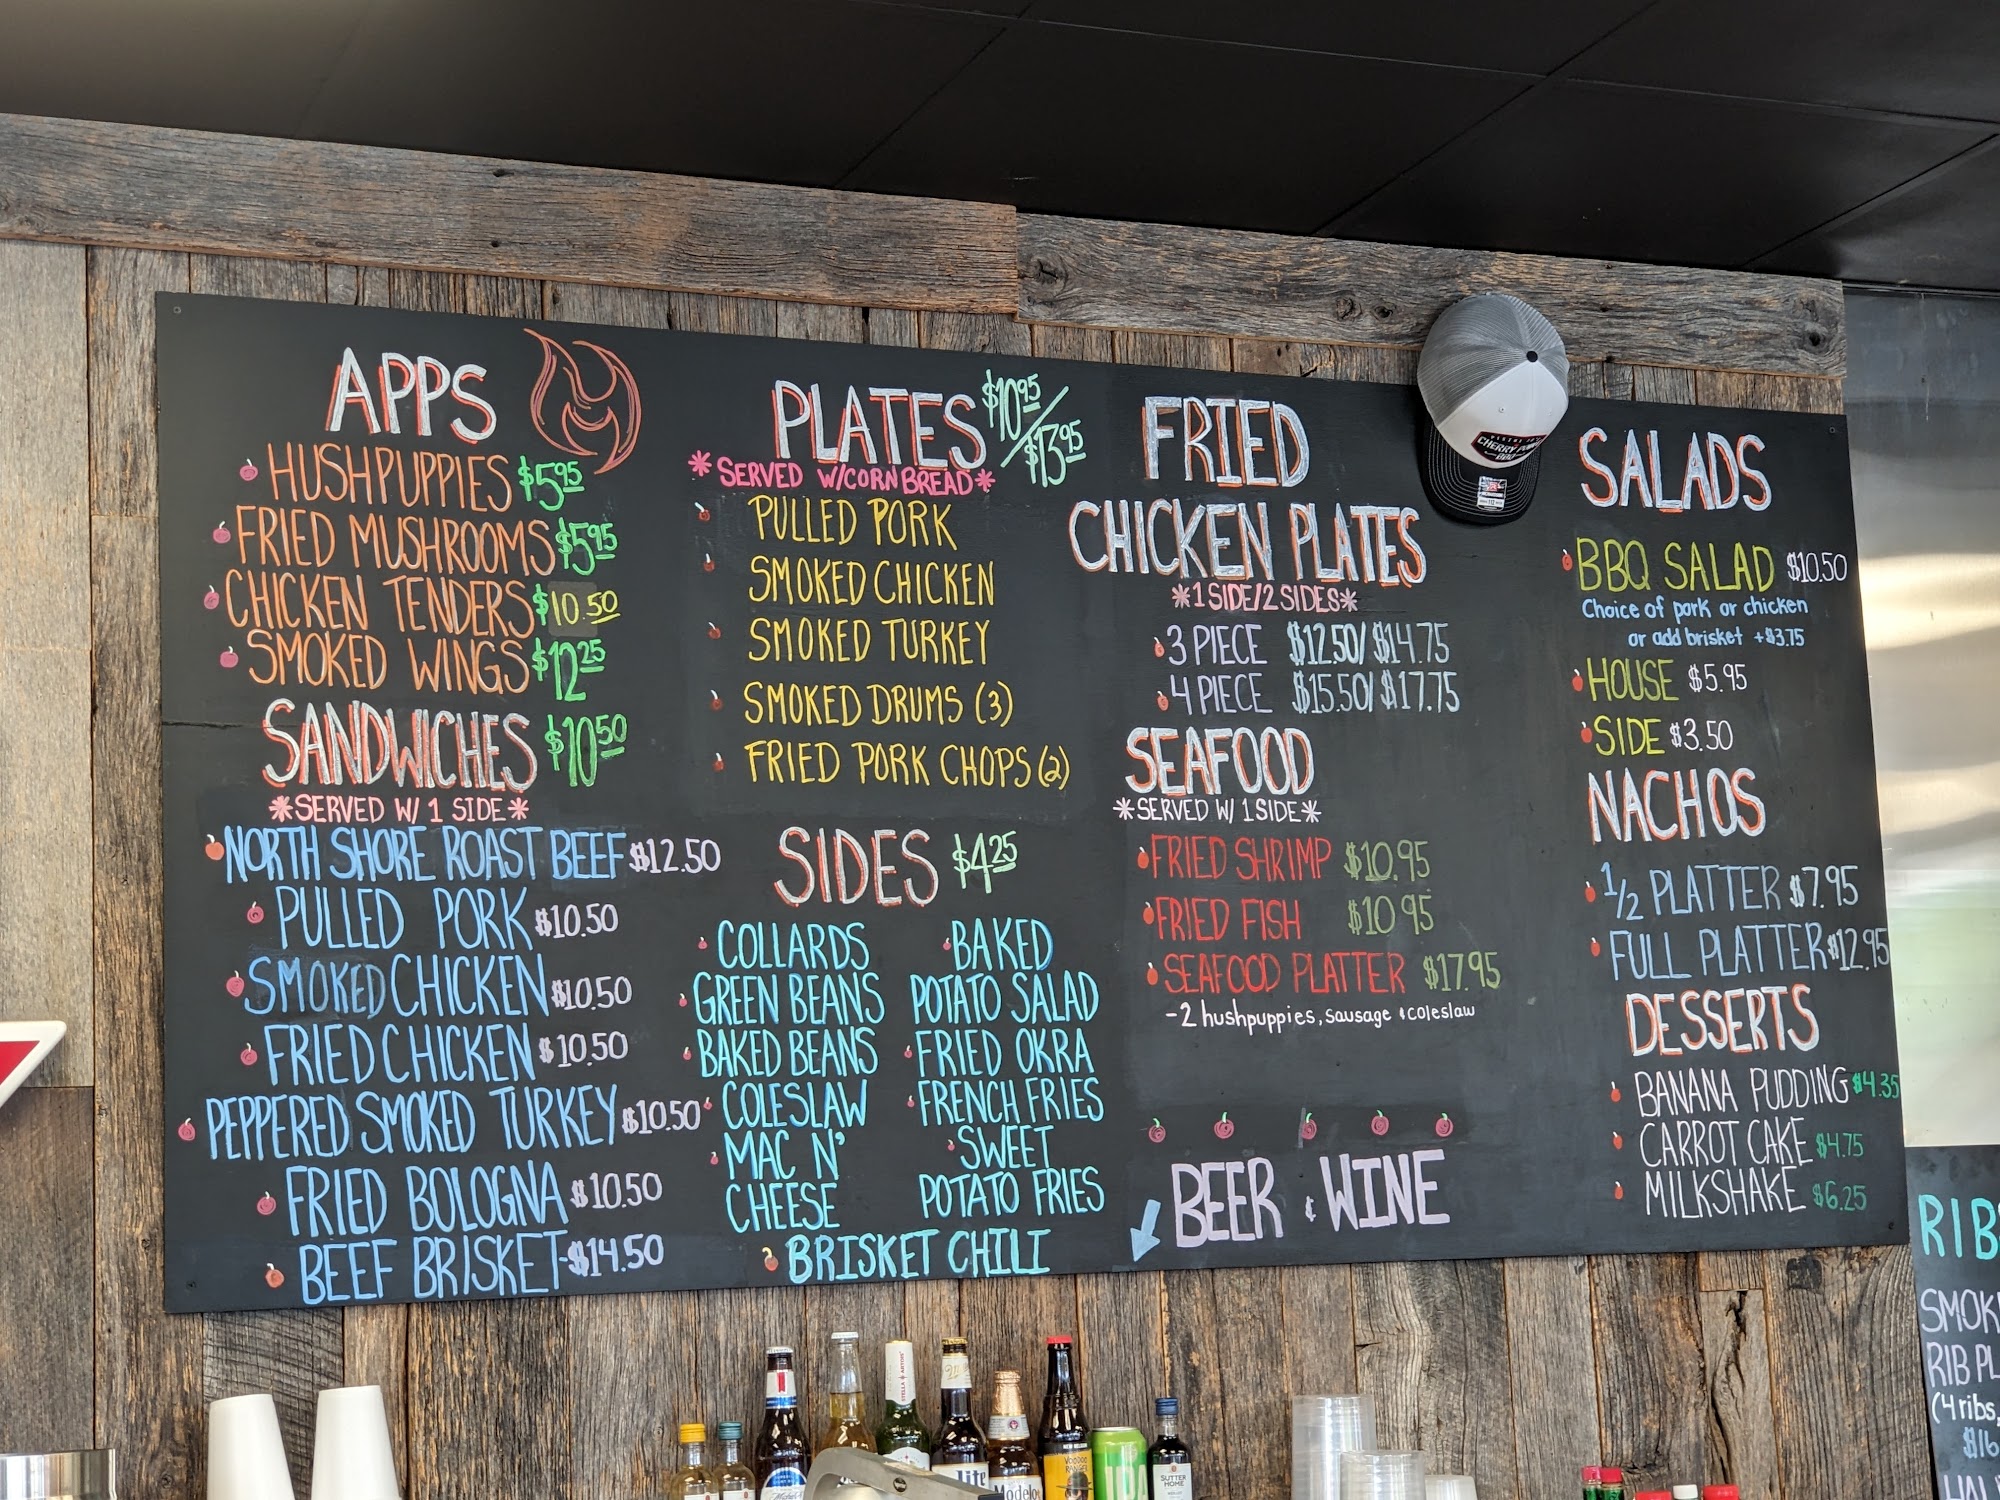 APPS
HUSHPUPPIES $5.95
FRIED MUSHROOMS $5.95
CHICKEN TENDERS $10.50
SMOKED WINGS $12.25
SANDWICHES $10.50
*SERVED W/ 1 SIDE*
NORTH SHORE ROAST BEEF $12.50
PULLED PORK $10.50
SMOKED CHICKEN $10.50
FRIED CHICKEN $10.50
PEPPERED SMOKED TURKEY $10.50
FRIED BOLOGNA $10.50
BEEF BRISKET-$14.50
PLATES $10.95/$13.95
*SERVED W/CORNBREAD*
PULLED PORK
SMOKED CHICKEN
SMOKED TURKEY
SMOKED DRUMS (3)
FRIED PORK CHOPS (2)
SIDES $4.25
COLLARDS
GREEN BEANS
BAKED BEANS
COLESLAW
MAC N'
CHEESE
BAKED
POTATO SALAD
FRIED OKRA
FRENCH FRIES
SWEET
POTATO FRIES
BRISKET CHILI
FRIED
CHICKEN PLATES
*1 SIDE/2 SIDES*
3 PIECE $12.50/$14.75
4 PIECE $15.50/$17.75
SEAFOOD
*SERVED W/ 1 SIDE*
FRIED SHRIMP $10.95
FRIED FISH $10.95
SEAFOOD PLATTER $17.95
-2 hushpuppies, sausage & coleslaw
BEER & WINE
SALADS
BBQ SALAD $10.50
Choice of pork or chicken
or add brisket +$3.75
HOUSE $5.95
SIDE $3.50
NACHOS
1/2 PLATTER $7.95
FULL PLATTER $12.95
DESSERTS
BANANA PUDDING $4.35
CARROT CAKE $4.75
MILKSHAKE $6.25
CHERRY
BBQ
RIB
SMOK
RIB PL
(4 ribs,
$16
HAL
STELLA ARTOIS
lite
Modelo
NEW BELGIUM
VOODOO
RANGER
IPA
SUTTER
HOME